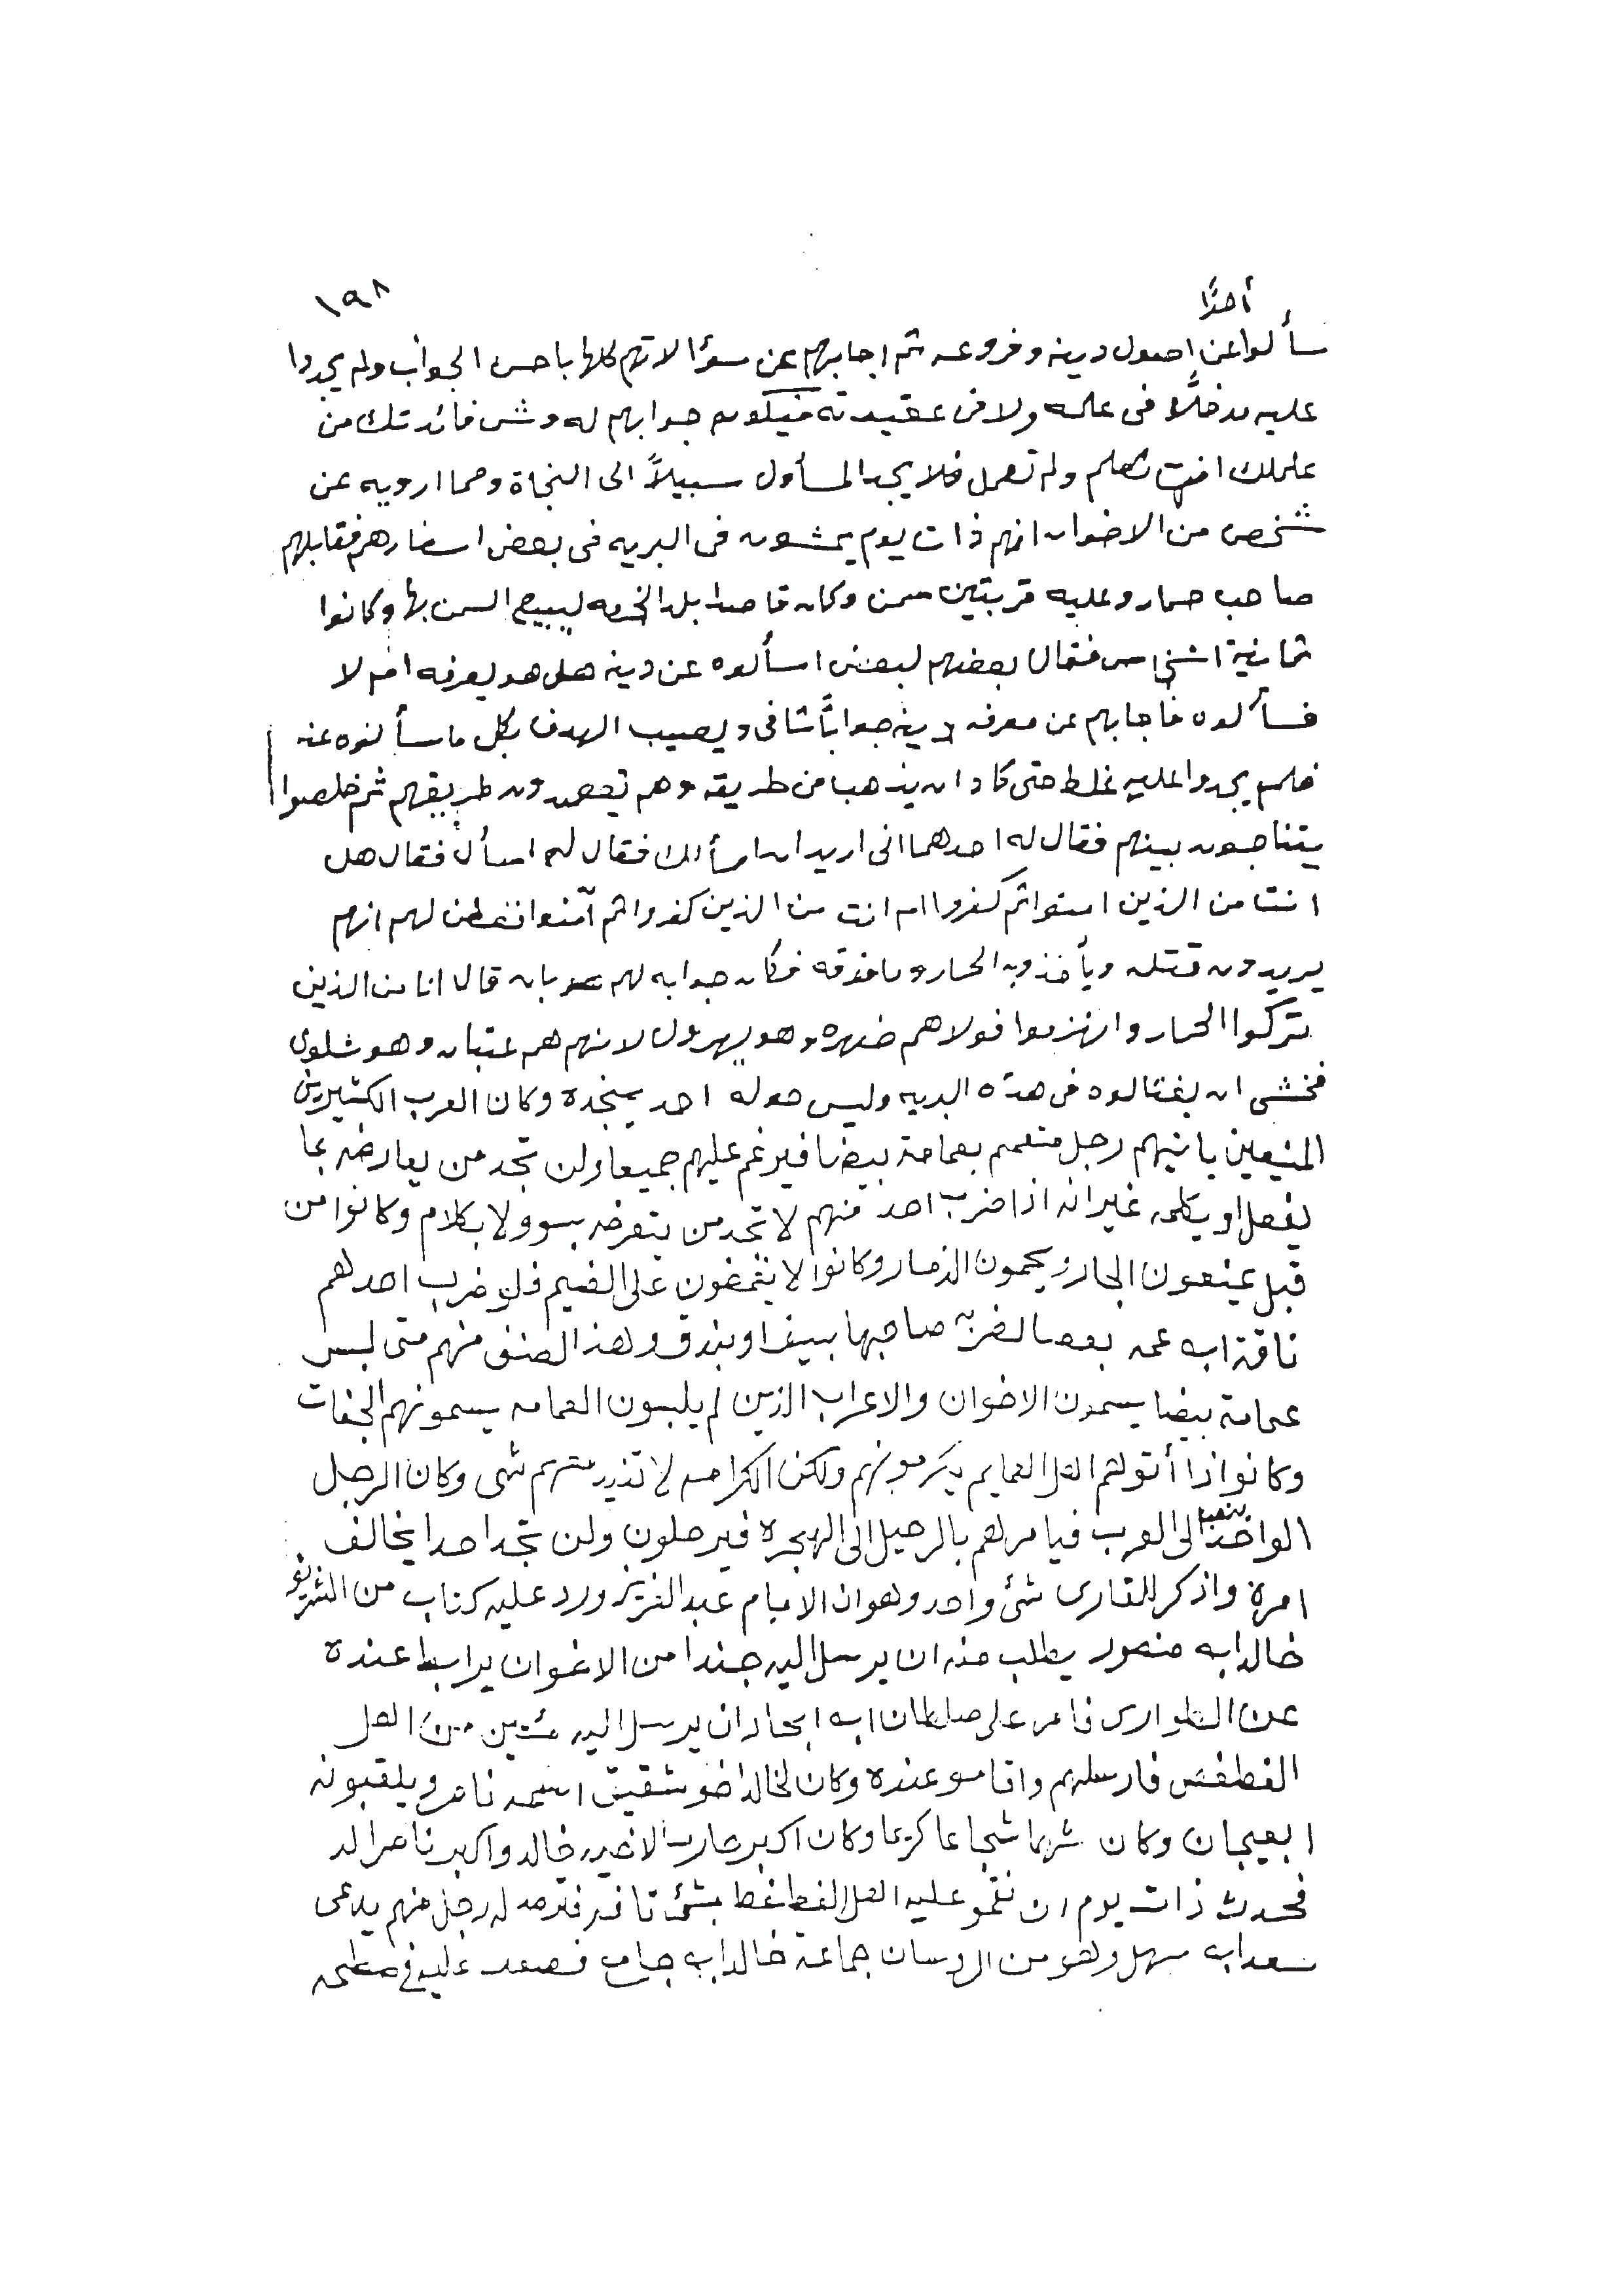 ١٩٨
أحدًا
سألوا عن اصول دينه وفروعه ثم اجابهم عن سؤالاتهم كلها باحسن الجواب ولم يجدوا
عليه مدخلًا فى علمه ولا فى عقيدته فيكون جوابهم له وش فائدتك من
علمك انت تعلم ولم تعمل فلا يجد المسأول سبيلاً الى النجاة ومما ارويه عن
شخص من الاخوان انهم ذات يوم يمشون فى البريه فى بعض اسفارهم فقابلهم
صاحب حمار وعليه قربتين سمن وكان قاصدا بلد الخرمه ليبيع السمن بها وكانوا
ثمانية اشخاص فقال بعضهم لبعض اسألوه عن دينه هل هو يعرفه ام لا
فسألوه فاجابهم عن معرفه دينه جواباً شافى ويصيب الهدف بكل ما سألوه عنه
فلم يجدوا عليه غلط حتى كاد ان يذهب من طريقه وهم يقصدون طريقهم ثم خلصوا
يتناجون بينهم فقال له احدهما انى اريد ان اسألك فقال لهم اسأل فقال هل
انت من الذين امنوا ثم كفروا ام انت من الذين كفروا ثم آمنوا ففطن لهم انهم
يريدون قتله ويأخذوا الحمار وما فوقه فكان جوابه لهم بان قال انا من الذين
تركوا الحمار وانهزموا فولاهم ظهره وهو يهرول لانهم هم عتبان وهو شلوى
فخشى ان يغتالوه فى هذه البريه وليس حوله احد ينجده وكان العرب الكثيرين
المنيعين يأتيهم رجل متعمم بعمامة بيضا فيرغم عليهم جميعا ولن تجد من يعارضه بما
يفعل او يكلمه غير انه اذا ضرب احد منهم لا تجد من يتعرضه بسوو ولا بكلام وكانوا من
قبل يمنعون الجار ويحمون الذمار وكانوا لا يغمضون على الضيم فلو ضرب احدهم
ناقة ابن عمه بعصا لضربه صاحبها بسيف او بندق وهذا الصنف منهم متى لبس
عمامة بيضا يسمون الاخوان والاعراب الذين لم يلبسون العمامه يسمونهم الجفات
وكانوا اذا أتوهم اهل العمايم يكرمونهم ولكن الكرامه لا تفيد منهم شى وكان الرجل
الواحد الى العرب فيامرهم بالرحيل الى الهجره فيرحلون ولن تجد احدا يخالف
امره واذكر للقارى شئ واحد وهو ان الامام عبدالعزيز ورد عليه كتاب من الشريف
خالد ابن منصور يطلب منه ان يرسل اليه جندا من الاخوان يرابط عنده
عن الطوارى فامر على سلطان ابن ابجاد ان يرسل اليه مئتين من اهل
الغطغط فارسلهم واقاموا عنده وكان لخالد اخو شقيق اسمه ناصر ويلقبونه
ابعيجان وكان شهما شجاعا كريما وكان اكبر
فحدث ذات يوم ان نقموا عليه اهل الغطغط بشئ تافه فترصد له رجل منهم يدعى
سعد ابن سهل وهو من الروسان جماعة خالد ابن جامع فصعد عليه فى